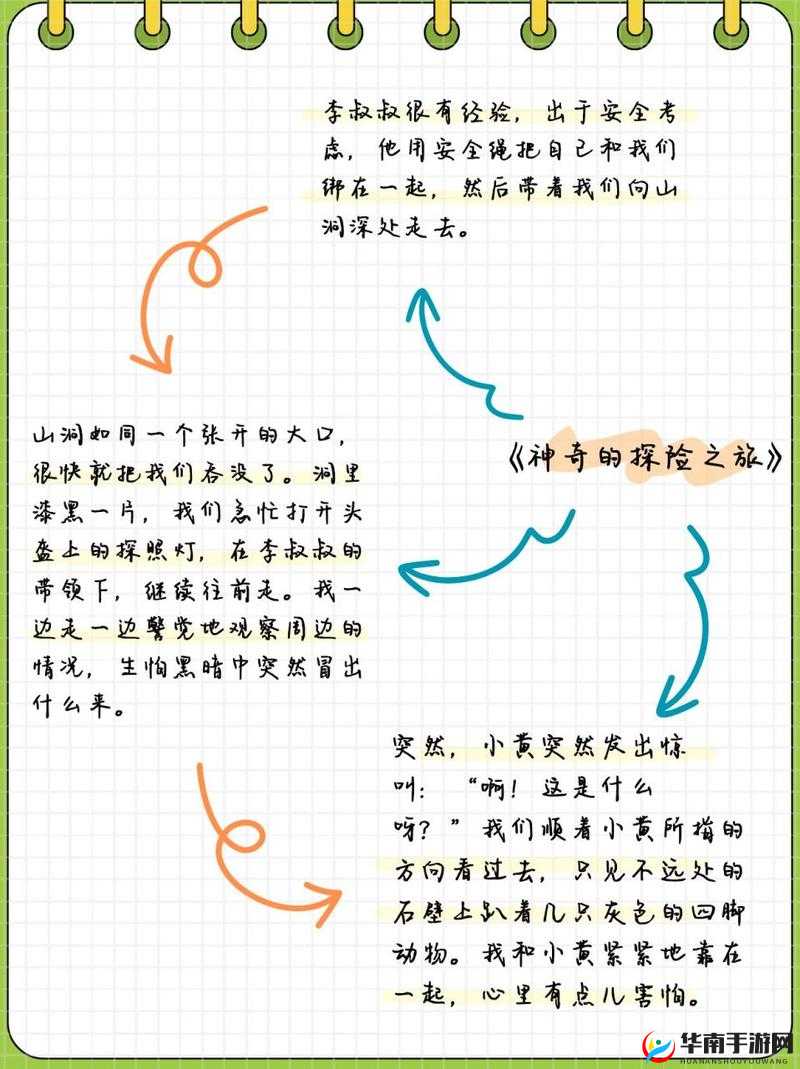 李叔叔很有经验，出于安全考
虑，他用安全绳把自己和我们
绑在一起，然后带着我们向山
洞深处走去。
《神奇的探险之旅》
山洞如同一个张开的大口，
很快就把我们吞没了。洞里
漆黑一片，我们急忙打开头
盔上的探照灯，在李叔叔的
带领下，继续往前走。我一
边走一边警觉地观察周边的
情况，生怕黑暗中突然冒出
什么来。
突然，小黄突然发出惊
叫：“啊！这是什么
呀？”我们顺着小黄所指的
方向看过去，只见不远处的
石壁上趴着几只灰色的四脚
动物。我和小黄紧紧地靠在
一起，心里有点儿害怕。
华南手游网
HUANANSHOUYOUWANG